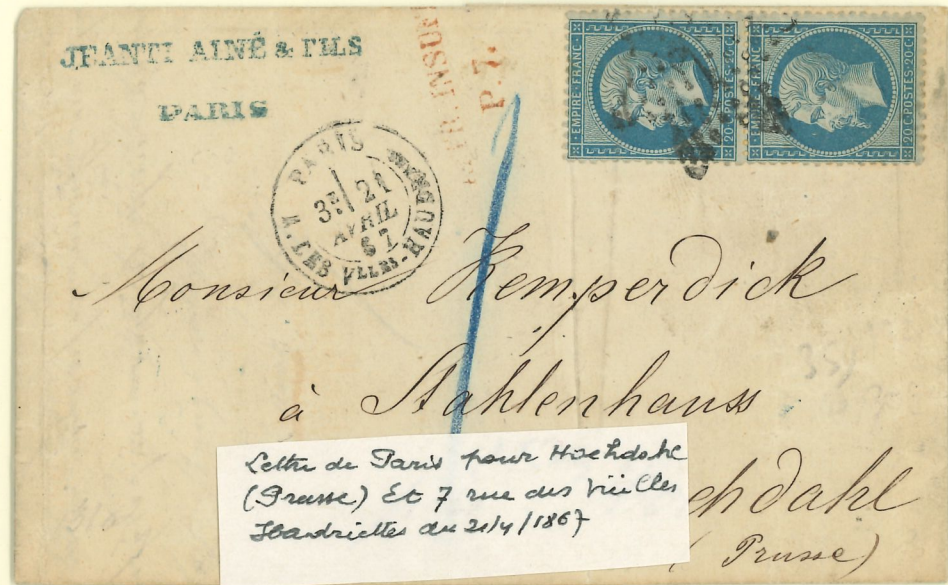 JEANTI AINÉ & FILS
PARIS
P.7.
EMPIRE FRANC
20 C POSTES 20 C
20 C POSTES 20 C
PARIS
3E 21
AVRIL
67
R. LES VLLES-HAUDR
Monsieur Kemperdick
à Stahlenhauss
chdahl
(Prusse)
Lettre de Paris pour Hochdahl
(Prusse) Et 7 rue des Vieilles
Haudriettes du 21/4/1867